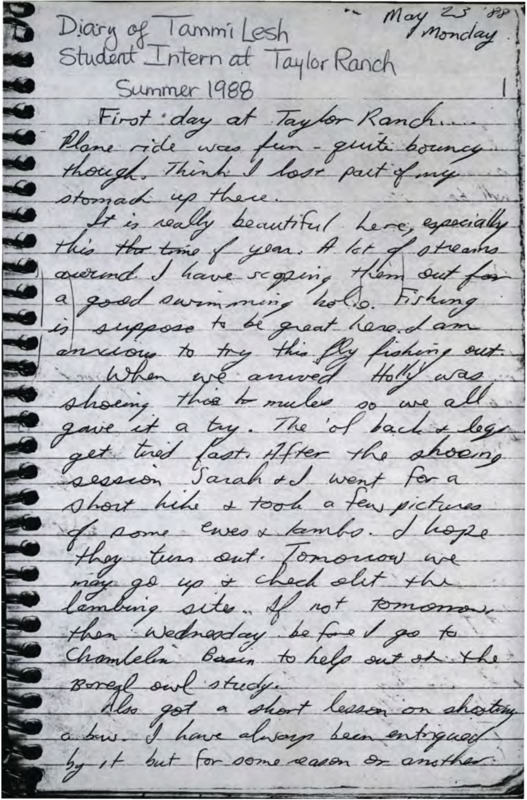 May 23 '88
Monday
Diary of Tammi Lesh
Student Intern at Taylor Ranch
Summer 1988
1
First day at Taylor Ranch....
Plane ride was fun - quite bouncy
though. Think I lost part of my
stomach up there.
It is really beautiful here, especially
this the time of year. A lot of streams
around I have scoping them out for
a good swimming hole. Fishing
is suppose to be great here. I am
anxious to try this fly fishing out.
When we arrived Holly was
shoeing the mules so we all
gave it a try. The 'ol back & legs
get tired fast. After the shoeing
session Sarah & I went for a
short hike & took a few pictures
of some ewes & lambs. I hope
they turn out. Tomorrow we
may go up & check out the
lambing sites. If not tomorrow,
then Wednesday before I go to
Chamberlin Basin to help out at the
Boreal owl study.
Also got a short lesson on shooting
a bow. I have always been entrigued
by it but for some reason or another